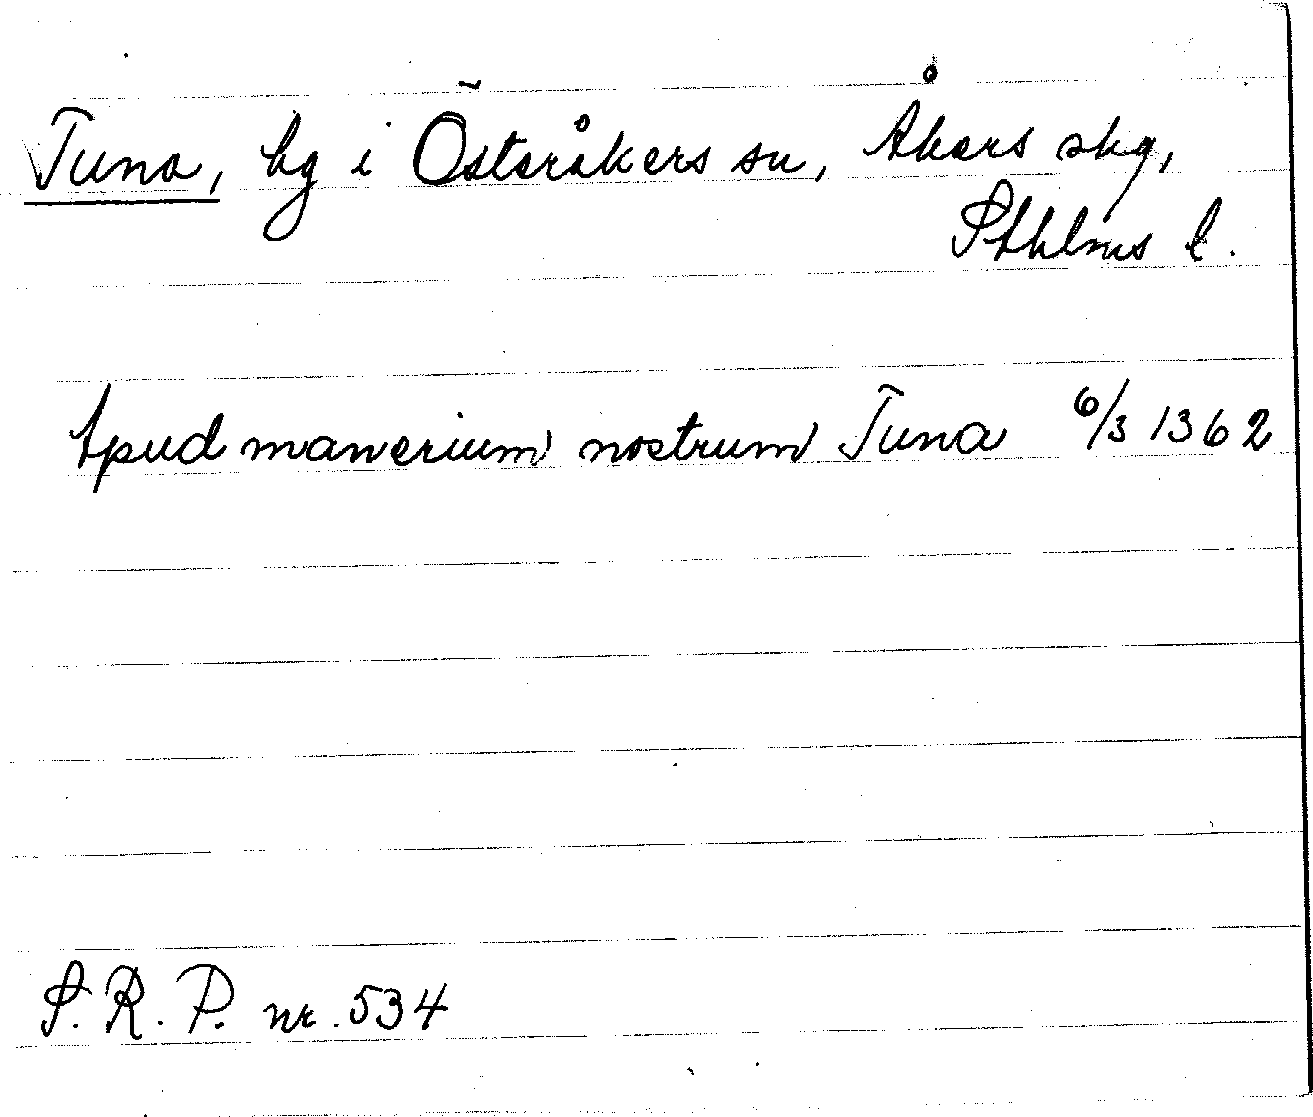 Tuna, hg i Österåkers sn, Åkers skg,
Sthlms l.
Apud manerium nostrum Tuna 6/3 1362
S. R. P. nr. 534